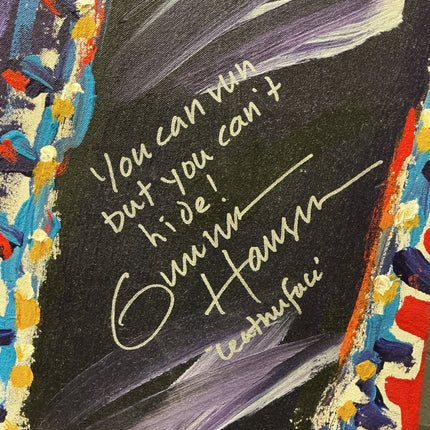 You can run
but you can't
hide!
Gunnar
Hansen
"Leatherface"